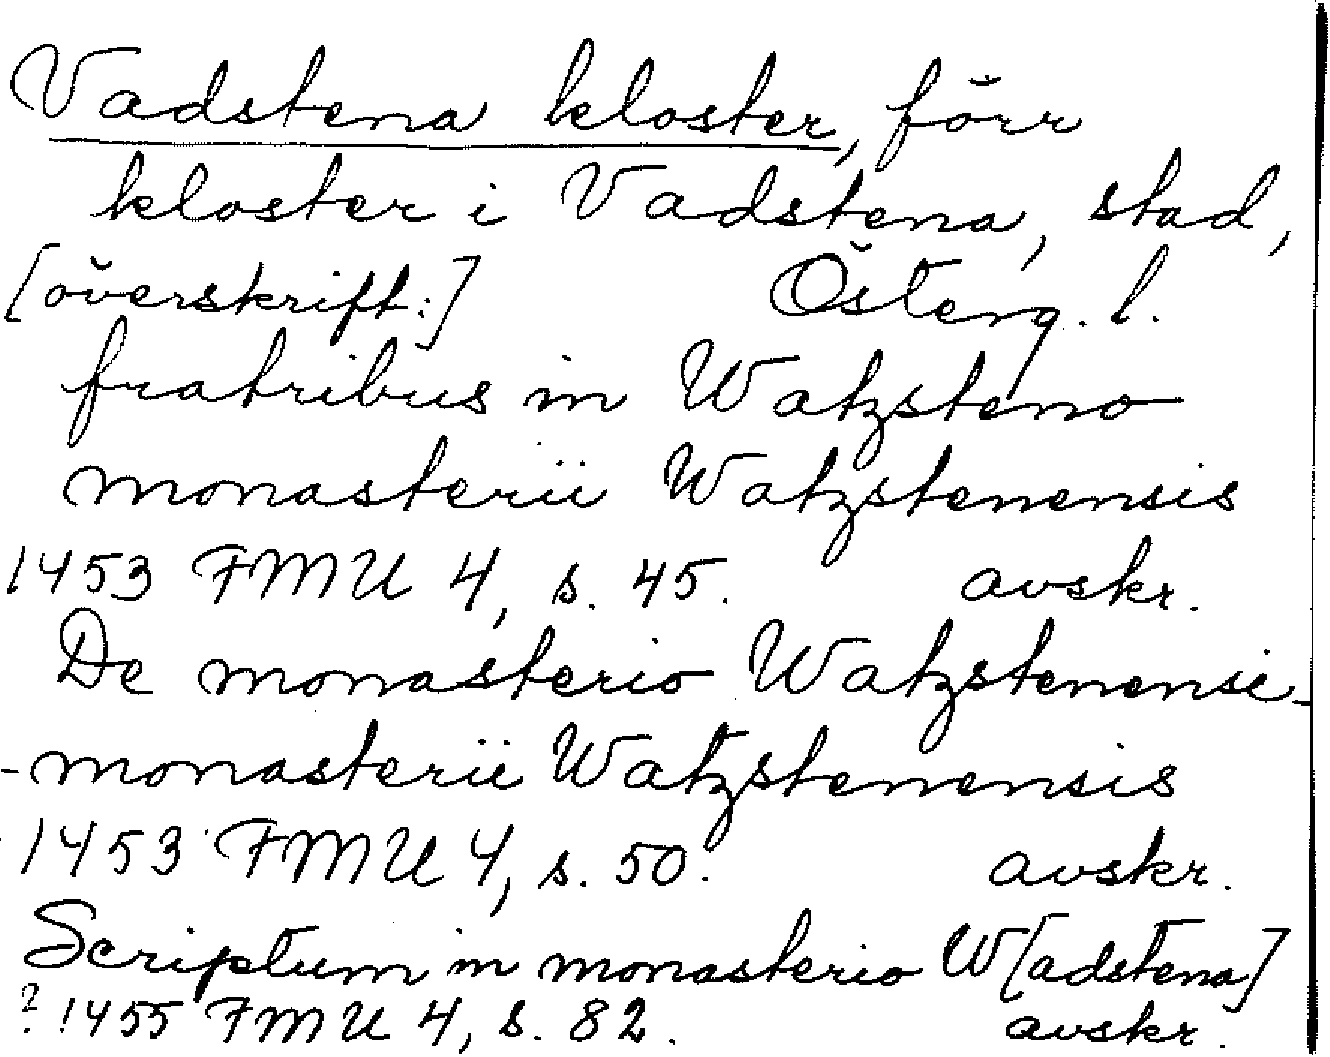 Vadstena kloster, förr
kloster i Vadstena, stad,
[överskrift:] Österg. l.
fratribus in Watzsteno
monasterii Watzstenensis
1453 FMU 4, s. 45. avskr.
De monasterio Watzstenensi-
-monasterii Watzstenensis
1453 FMU 4, s. 50. avskr.
Scriptum in monasterio W[adstena]
? 1455 FMU 4, s. 82. avskr.